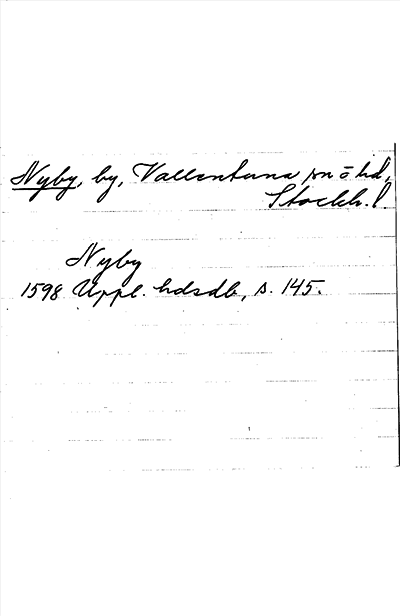 Nyby, by, Vallentuna sn o hd,
Stockh. l.
Nyby
1598 Uppl. hdsdb, s. 145.